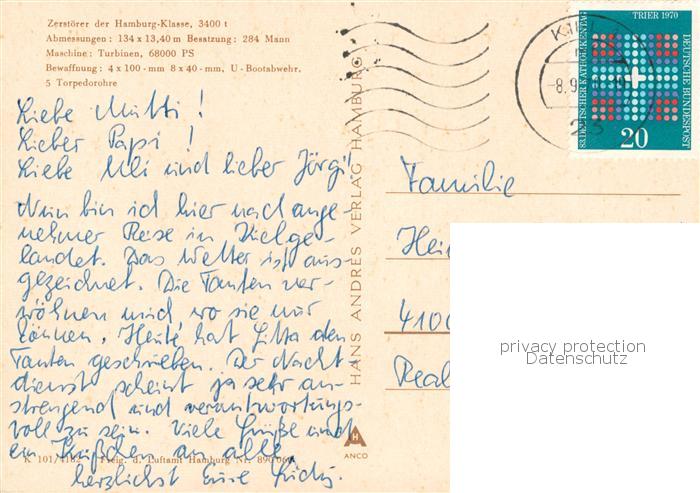 Zerstörer der Hamburg-Klasse, 3400 t
Abmessungen: 134 x 13,40 m Besatzung: 284 Mann
Maschine: Turbinen, 68000 PS
Bewaffnung: 4 x 100-mm 8 x 40-mm, U-Bootabwehr,
5 Torpedorohre
Liebe Mutti!
Lieber Papi!
Liebe Uli und lieber Jörgi!
Nun bin ich hier nach ange-
nehmer Reise in Kiel ge-
landet. Das Wetter ist aus-
gezeichnet. Die Tanten ver-
wöhnen mich wo sie nur
können. Heute hat Litta den
Tanten geschrieben. Der Nacht-
dienst scheint ja sehr an-
strengend und verantwortungs-
voll zu sein. Viele Grüße und
ein Küßchen an alle
herzlichst Eure
K 101/4182 Freig. d. Luftamt Hamburg Nr.
HANS ANDRES VERLAG HAMBURG
H A
ANCO
KIEL
-8.9
23
83. DEUTSCHER KATHOLIKENTAG
TRIER 1970
DEUTSCHE BUNDESPOST
20
Familie
Hei
4100
Real
privacy protection
Datenschutz